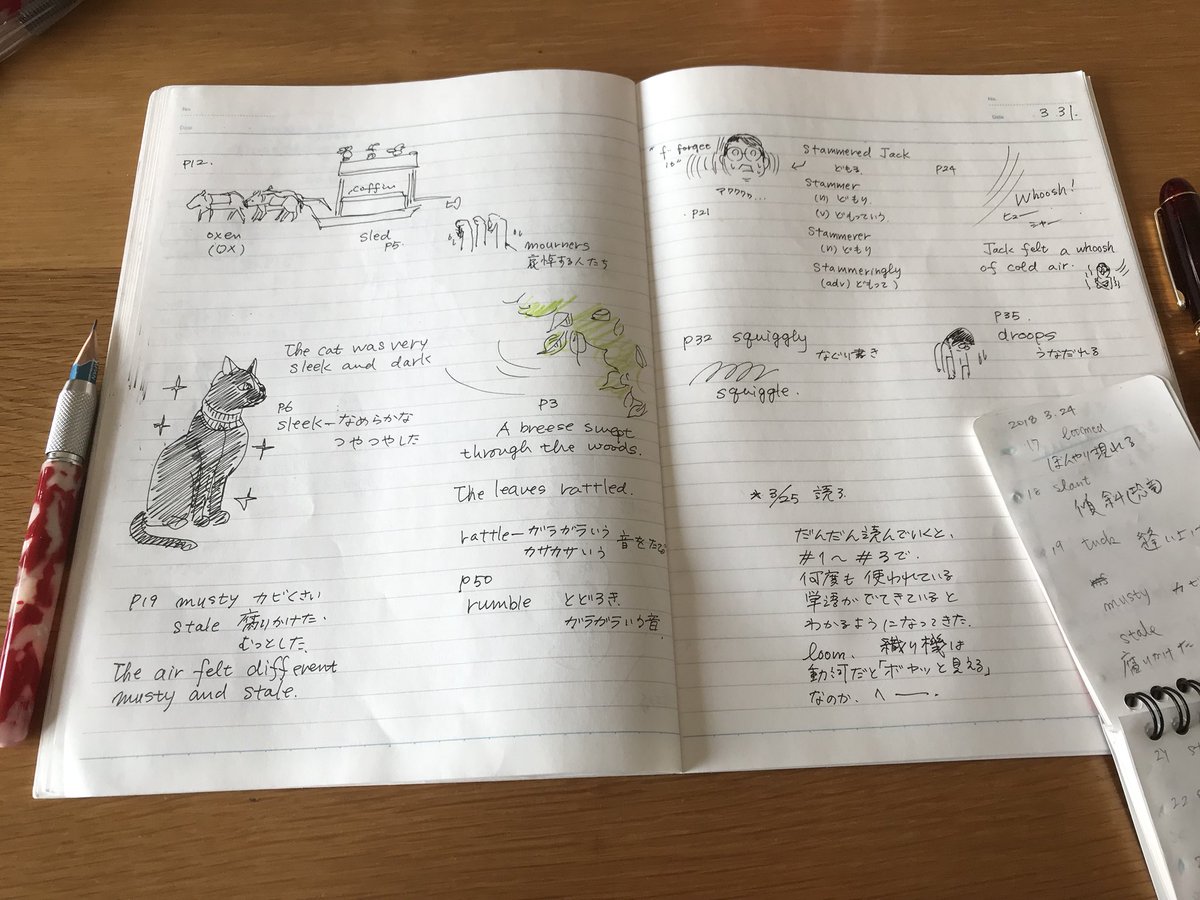 No.
Date
P12.
coffin
oxen
(ox)
sled
P5.
mourners
哀悼する人たち
The cat was very
sleek and dark
P6
sleek－なめらかな
つやつやした
P3
A breese swept
through the woods.
The leaves rattled.
rattle－ガラガラいう
カサカサいう
音をたてる
P50
rumble とどろき
ガラガラいう音
P19 musty カビくさい
stale 腐りかけた.
むっとした.
The air felt different
musty and stale.
No.
Date 3 31.
"f. forget
it"
アワワワ...
P21
Stammered Jack
どもる
Stammer
(n) どもり
(v) どもっていう
Stammerer
(n) どもり
Stammeringly
(adv) どもって
P24
Whoosh!
ヒュー
シャー
Jack felt a whoosh
of cold air.
P32 squiggly なぐり書き
squiggle.
P35.
droops
うなだれる
* 3/25 読了
だんだん読んでいくと、
#1～#3で.
何度も使われている
単語がでてきていると
わかるようになってきた.
loom、織り機は
動詞だと「ボヤッと見える」
なのか. へー.
2018 3.24
17 loomed
ぼんやり現れる
18 slant
傾斜
19 tuck
musty カ
stale
腐りかけた
24
22